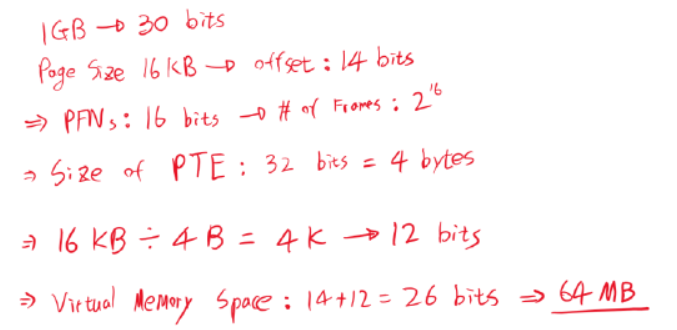 1GB → 30 bits
Page Size 16KB → offset : 14 bits
⇒ PFNs : 16 bits → # of Frames : 2^16
⇒ Size of PTE : 32 bits = 4 bytes
⇒ 16 KB ÷ 4 B = 4K → 12 bits
⇒ Virtual Memory Space : 14+12 = 26 bits ⇒ 64 MB